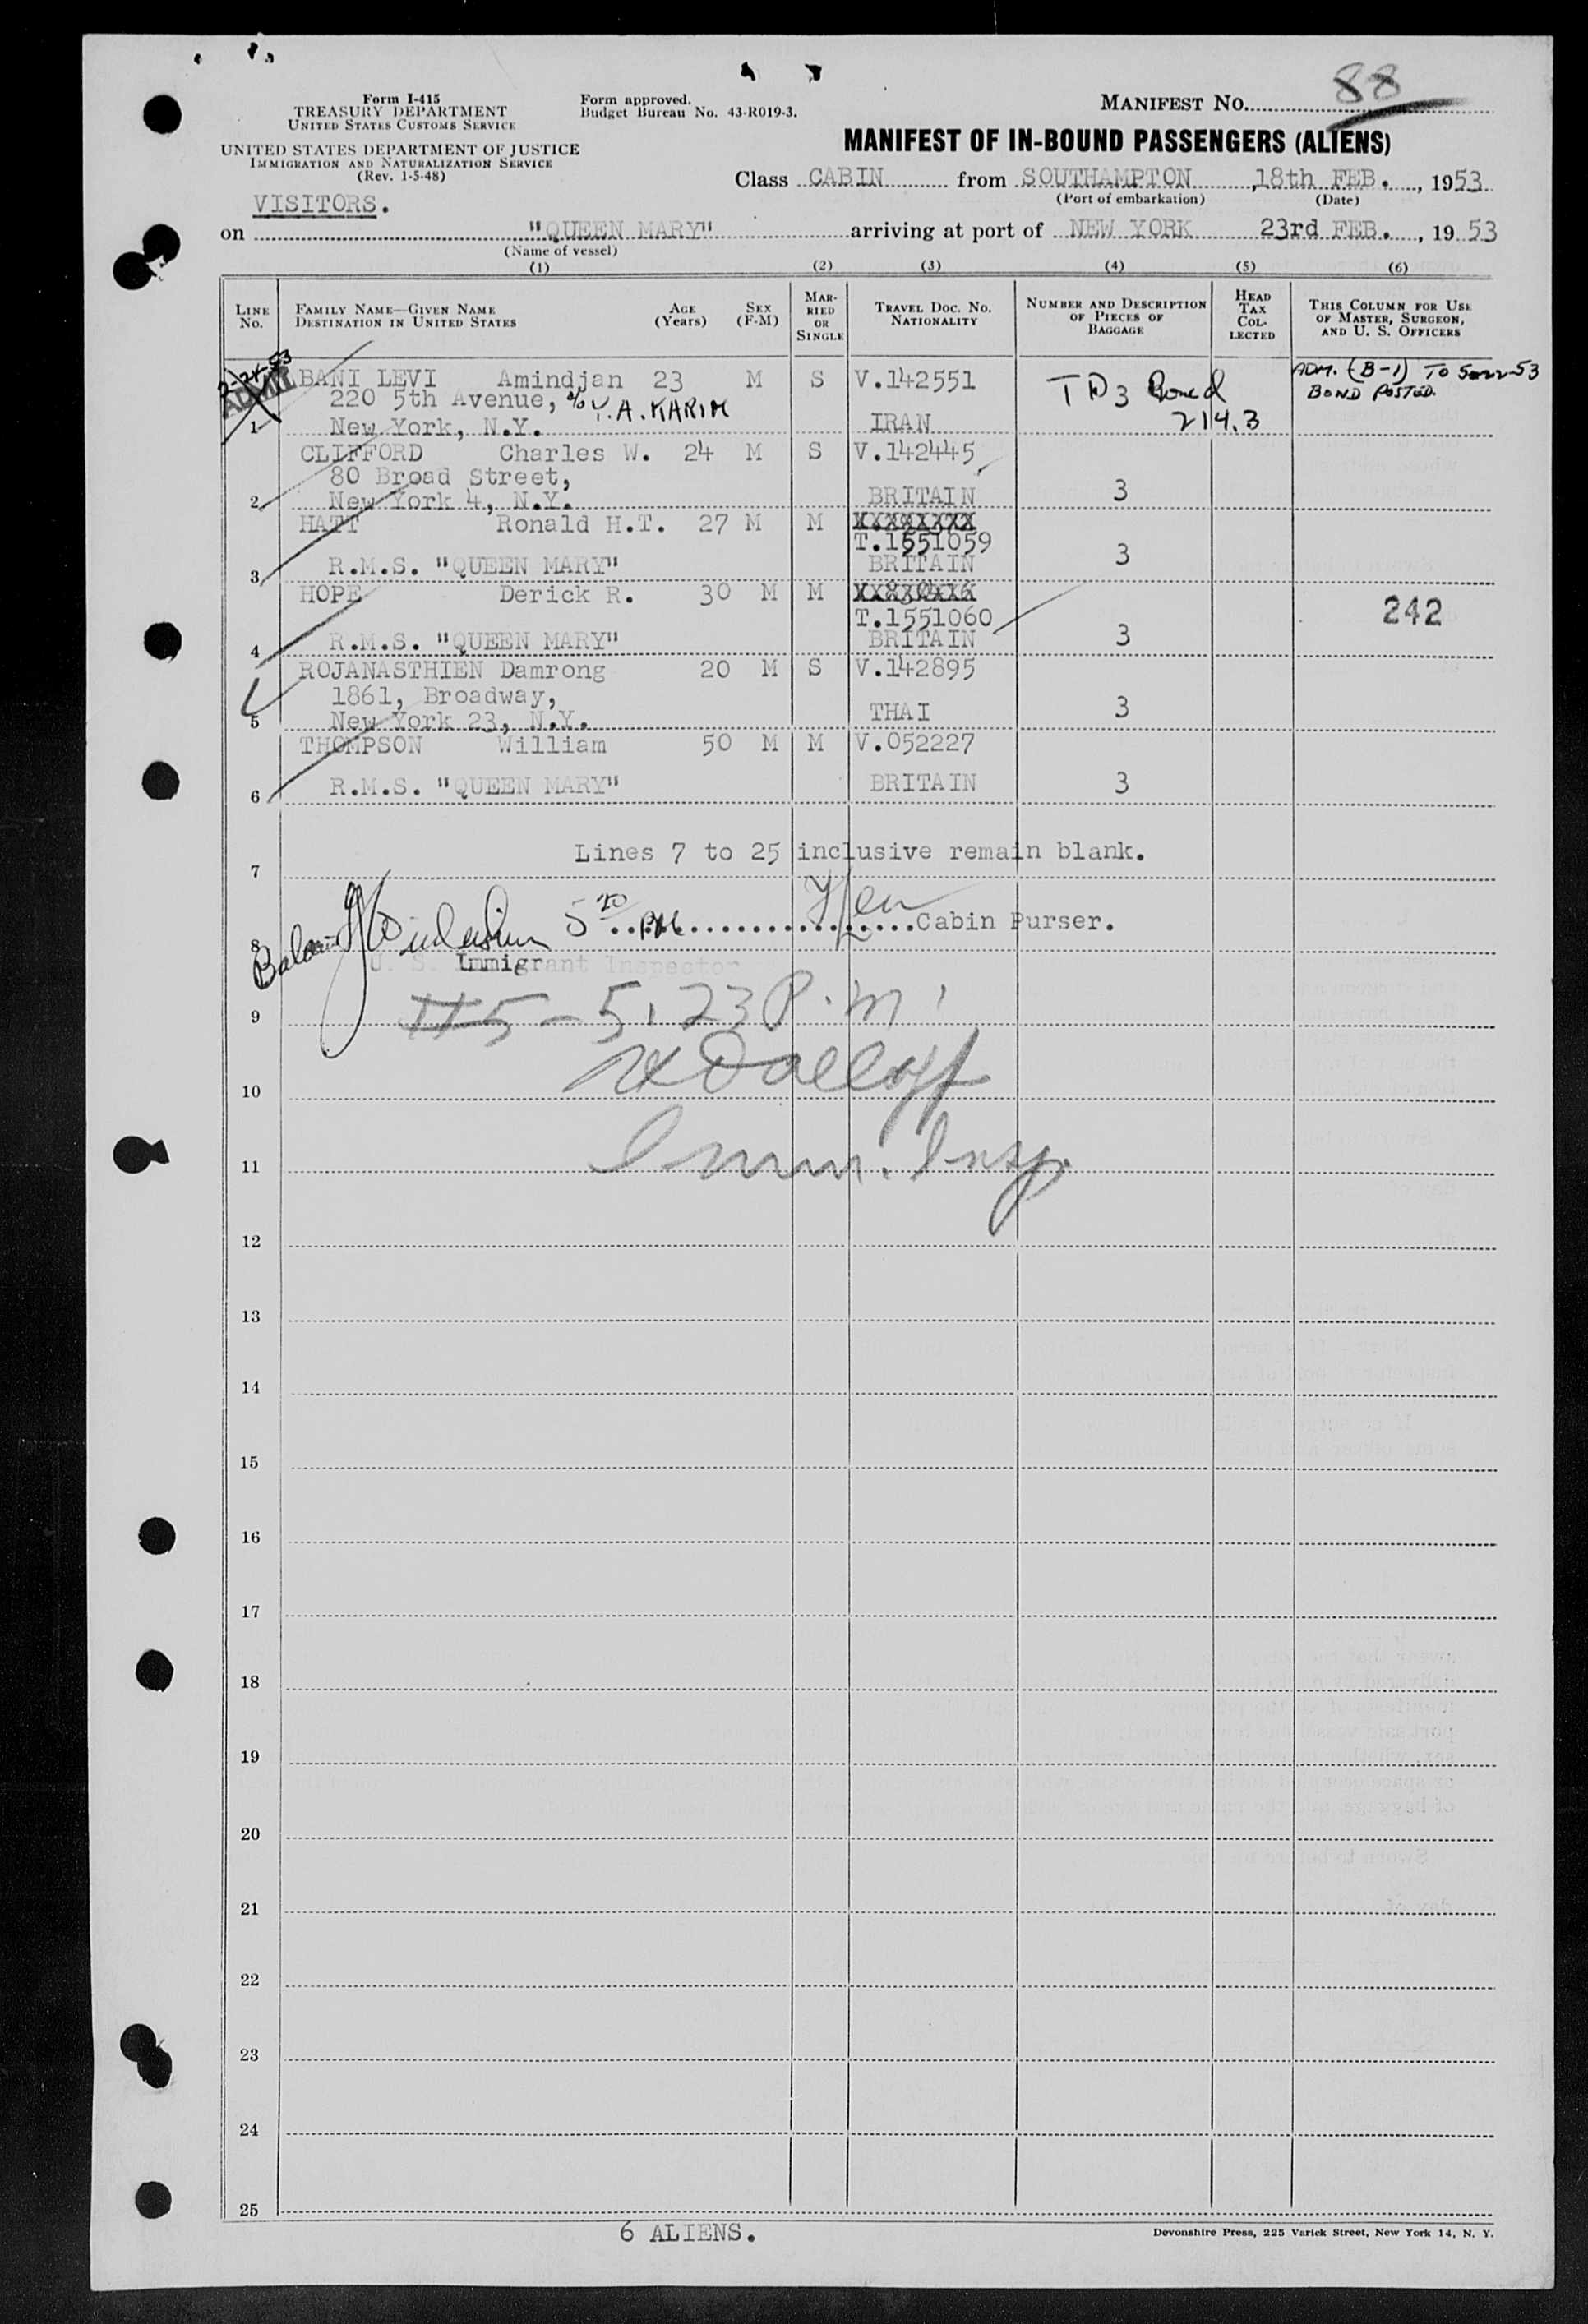 Form I-415
TREASURY DEPARTMENT
UNITED STATES CUSTOMS SERVICE
UNITED STATES DEPARTMENT OF JUSTICE
IMMIGRATION AND NATURALIZATION SERVICE
(Rev. 1-5-48)
Form approved.
Budget Bureau No. 43-R019-3.
MANIFEST No. 88
MANIFEST OF IN-BOUND PASSENGERS (ALIENS)
Class CABIN from SOUTHAMPTON, 18th FEB., 1953
(Port of embarkation) (Date)
VISITORS.
on "QUEEN MARY" arriving at port of NEW YORK 23rd FEB., 1953
(Name of vessel)
(1) (2) (3) (4) (5) (6)
LINE No. FAMILY NAME—GIVEN NAME DESTINATION IN UNITED STATES AGE (Years) SEX (F-M) MARRIED OR SINGLE TRAVEL DOC. No. NATIONALITY NUMBER AND DESCRIPTION OF PIECES OF BAGGAGE HEAD TAX COLLECTED THIS COLUMN FOR USE OF MASTER, SURGEON, AND U. S. OFFICERS
2-24-53 ADMIT
BANI LEVI Amindjan 23 M S V.142551 ADM. (B-1) TO 5-22-53
220 5th Avenue, c/o Y.A. KARIM 3 BOND POSTED.
1 New York, N.Y. IRAN 2143
CLIFFORD Charles W. 24 M S V.142445
80 Broad Street,
2 New York 4, N.Y. BRITAIN 3
HATT Ronald H.T. 27 M M
T.1551059
3 R.M.S. "QUEEN MARY" BRITAIN 3
HOPE Derick R. 30 M M
T.1551060 242
4 R.M.S. "QUEEN MARY" BRITAIN 3
ROJANASTHIEN Damrong 20 M S V.142895
1861, Broadway,
5 New York 23, N.Y. THAI 3
THOMPSON William 50 M M V.052227
6 R.M.S. "QUEEN MARY" BRITAIN 3
Lines 7 to 25 inclusive remain blank.
7
5 20 PM Cabin Purser.
8
U. S. Immigrant Inspector
#5 - 5:23 P.M.
9
10
Imm. Insp.
11
12
13
14
15
16
17
18
19
20
21
22
23
24
25
6 ALIENS.
Devonshire Press, 225 Varick Street, New York 14, N. Y.